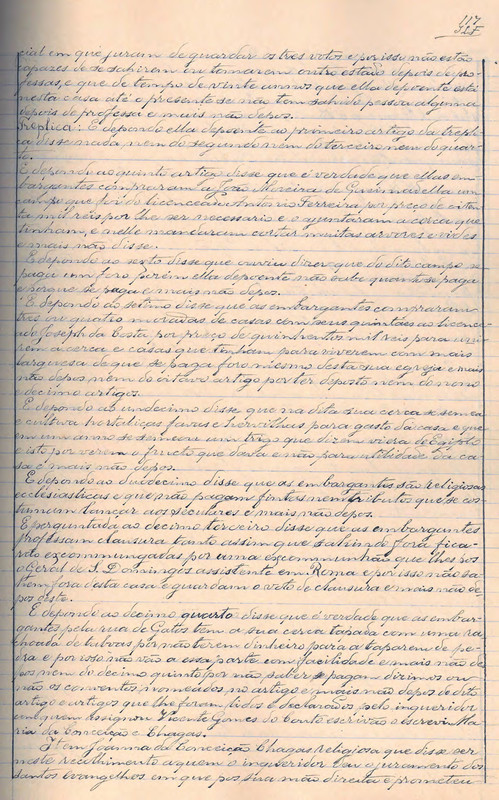 117
cial em que juram de guardar os tres votos e por isso não estão
capazes de se sahirem ou tomaram outro estado depois de pro-
fessas, e que de tempo de vinte annos que ella depoente está
nesta casa até o presente se não tem sahido pessoa alguma
depois de professa e mais não depos.
Treplica: E depondo ella depoente ao primeiro artigo da trepli-
ca disse nada, nem do segundo nem do terceiro nem do quar-
to.
E depondo ao quinto artigo disse que é verdade que ellas em-
bargantes compraram a João Moreira de Gueimadella um
campo que foi do licenceado Antonio Ferreira por preço de oiten-
ta mil reis por lhe ser necessario e o ajuntaram a cerca que
tinham, e nelle mandaram cortar muitas arvores e vides
e mais não disse.
E depondo ao sexto disse que ouviu dizer que do dito campo se
paga um foro porém ella depoente não sabe quanto se paga
e porque se paga e mais não depos.
E depondo ao setimo disse que as embargantes compraram
tres ou quatro moradas de casas com seus quintaes ao licence-
ado Joseph da Costa por preço de quinhentos mil reis para uni-
rem á cerca e casas que tinham para viverem com mais
largueza de que se paga foro mesmo desta sua egreja e mais
não depos nem do oitavo artigo por ter deposto nem do nono
e decimo artigos.
E depondo ao undecimo disse que na dita sua cerca se semea
e cultiva hortaliças favas e hervilhas para gasto da casa e que
em um anno se semeara um trigo que dizem viera do Egipto
e isto por verem o fructo que dava e não para utilidade da ca-
sa e mais não depos.
E depondo ao duodecimo disse que as embargantes são religiosas
ecclesiasticas e que não pagam fintas nem tributos que se cos-
tumam lançar aos seculares e mais não depos.
E perguntada ao decimo terceiro disse que as embargantes
professam clausura tanto assim que sahindo fóra fica-
rão excommungadas por uma excommunhão que lhes pôs
o Geral de S. Domingos assistente em Roma e por isso não sa-
hem fora desta casa e guardam o voto de clausura e mais não de-
pos deste.
E depondo ao decimo quarto disse que é verdade que as embar-
gantes pela rua de Gatos tem a sua cerca tapada com uma ra-
moada de taboas por não terem dinheiro para a taparem de pe-
dra e por isso não vão a essa parte com facilidade e mais não de-
pos nem do decimo quinto por não saber se pagam dizimos ou
não os conventos nomeados no artigo e mais não depos de dito
artigo e artigos que lhe foram lidos e declarados pelo inqueridor
com quem assignou Vicente Gomes do Couto escrivão o escrevi Ma-
ria da Conceição e Chagas.
Item Joanna da Conceição Chagas religiosa que disse ser
neste recolhimento a quem o inqueridor deu o juramento dos
Santos Evangelhos em que pos sua mão direita e prometteu